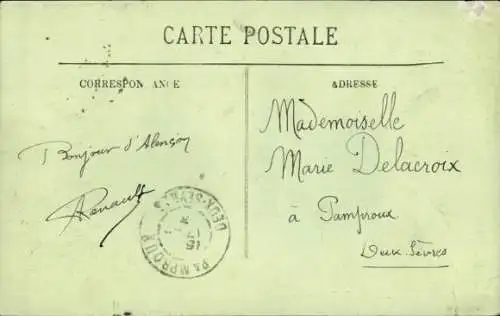 CARTE POSTALE
CORRESPONDANCE
ADRESSE
Bonjour d'Alençon
Renault
Mademoiselle
Marie Delacroix
à Pamproux
Deux-Sèvres
PAMPROUX
DEUX-SEVRES